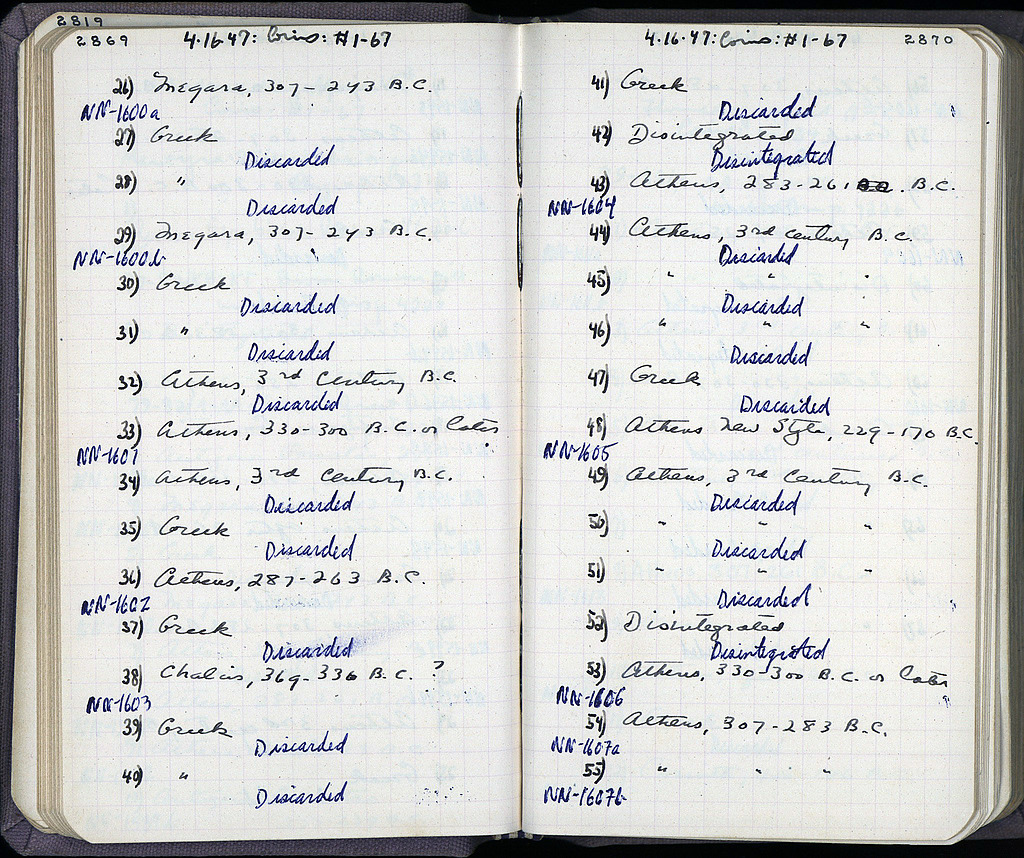 2819
2869 4.16.47: Coins: #1-67
26) Megara, 307-243 B.C.
NN-1600a
27) Greek
Discarded
28) "
Discarded
29) Megara, 307-243 B.C.
NN-1600b
30) Greek
Discarded
31) "
Discarded
32) Athens, 3rd Century B.C.
Discarded
33) Athens, 330-300 B.C. or Later
NN-1601
34) Athens, 3rd Century B.C.
Discarded
35) Greek
Discarded
36) Athens, 287-263 B.C.
NN-1602
37) Greek
Discarded
38) Chalcis, 369-336 B.C. ?
NN-1603
39) Greek
Discarded
40) "
Discarded
4.16.47: Coins: #1-67 2870
41) Greek
Discarded
42) Disintegrated
Disintegrated
43) Athens, 283-261 B.C.
NN-1604
44) Athens, 3rd Century B.C.
Discarded
45) " " "
Discarded
46) " " "
Discarded
47) Greek
Discarded
48) Athens New Style, 229-170 B.C.
NN-1605
49) Athens, 3rd Century B.C.
Discarded
50) " " "
Discarded
51) " " "
Discarded
52) Disintegrated
Disintegrated
53) Athens, 330-300 B.C. or Later
NN-1606
54) Athens, 307-283 B.C.
NN-1607a
55) " " "
NN-1607b